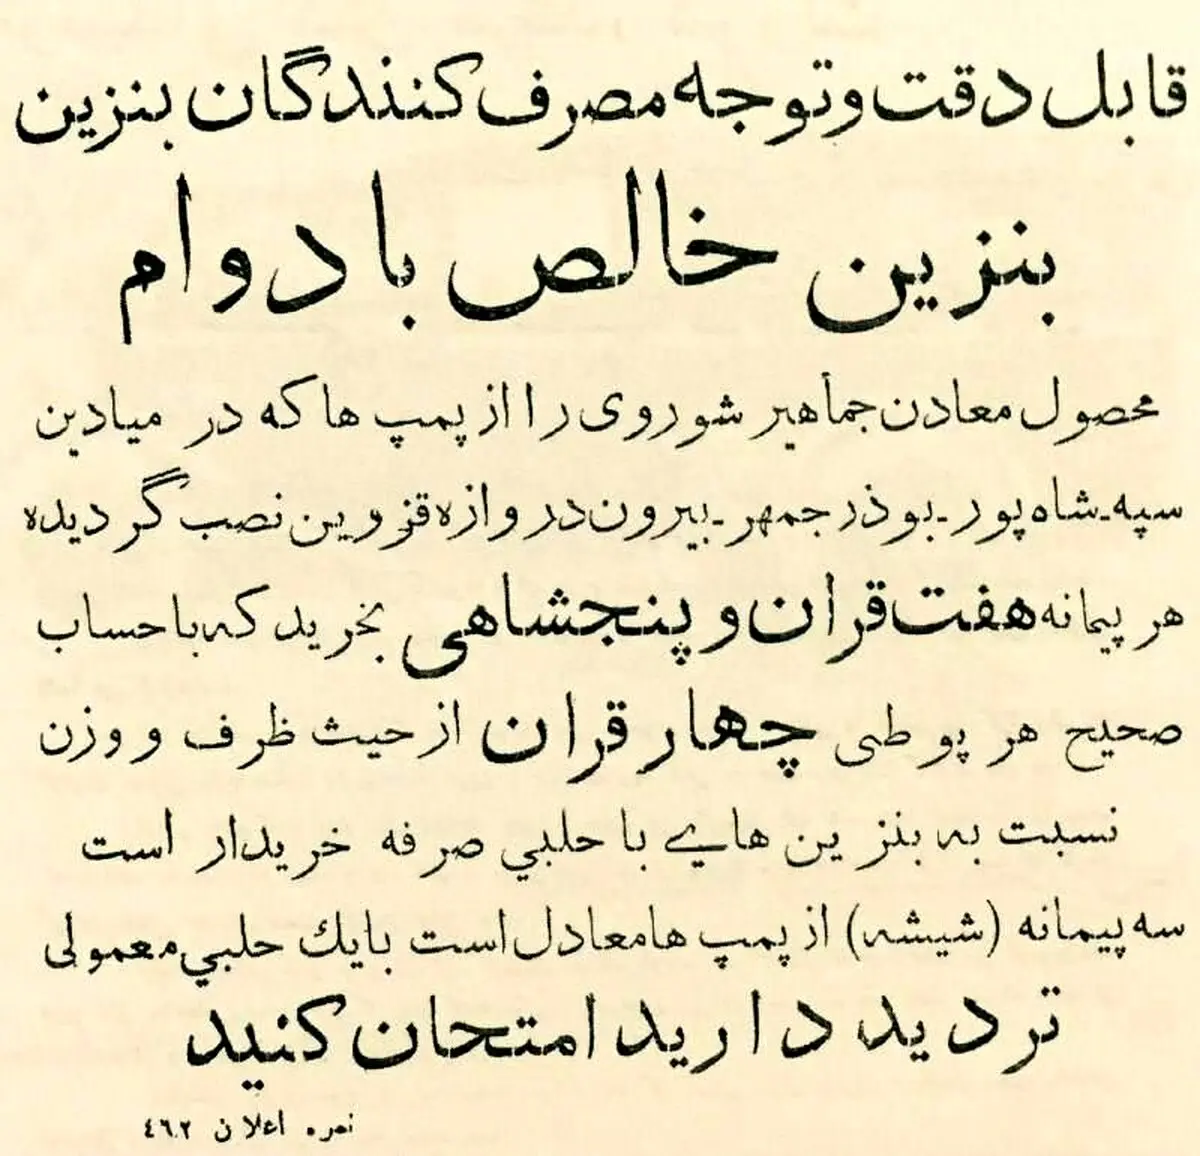 قابل دقت و توجه مصرف کنندگان بنزین
بنزین خالص با دوام
محصول معادن جمأهیر شوروی را از پمپ ها که در میادین
سپه ـ شاه پور ـ بوذر جمهر ـ بیرون دروازه قزوین نصب گردیده
هر پیمانه هفت قران و پنجشاهی بخرید که با حساب
صحیح هر پوطی چهار قران از حیث ظرف و وزن
نسبت به بنزین هایے با حلبي صرفه خریدار است
سه پیمانه (شیشه) از پمپ ها معادل است بایك حلبي معمولی
تردید دارید امتحان کنید
نمره اعلان ٤٦٠٢